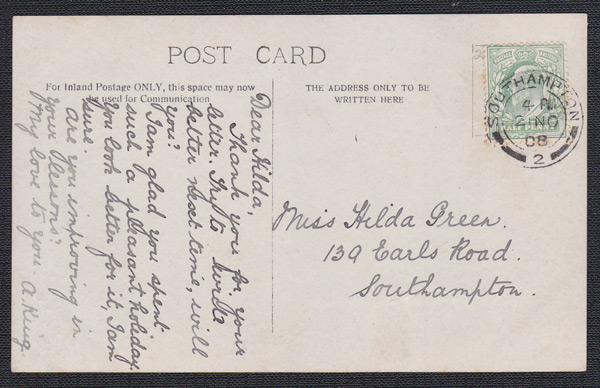 POST CARD
For Inland Postage ONLY, this space may now
be used for Communication.
THE ADDRESS ONLY TO BE
WRITTEN HERE
HALF PENNY
SOUTHAMPTON
4 PM
2 NO
08
2
Dear Hilda,
Thank you for your
letter. Try to write
better next time, will
you?
I am glad you spent
such a pleasant holiday.
You look better for it, I am
sure.
Are you improving in
your lessons?
My love to you. A. King.
Miss Hilda Green.
139 Earls Road.
Southampton.